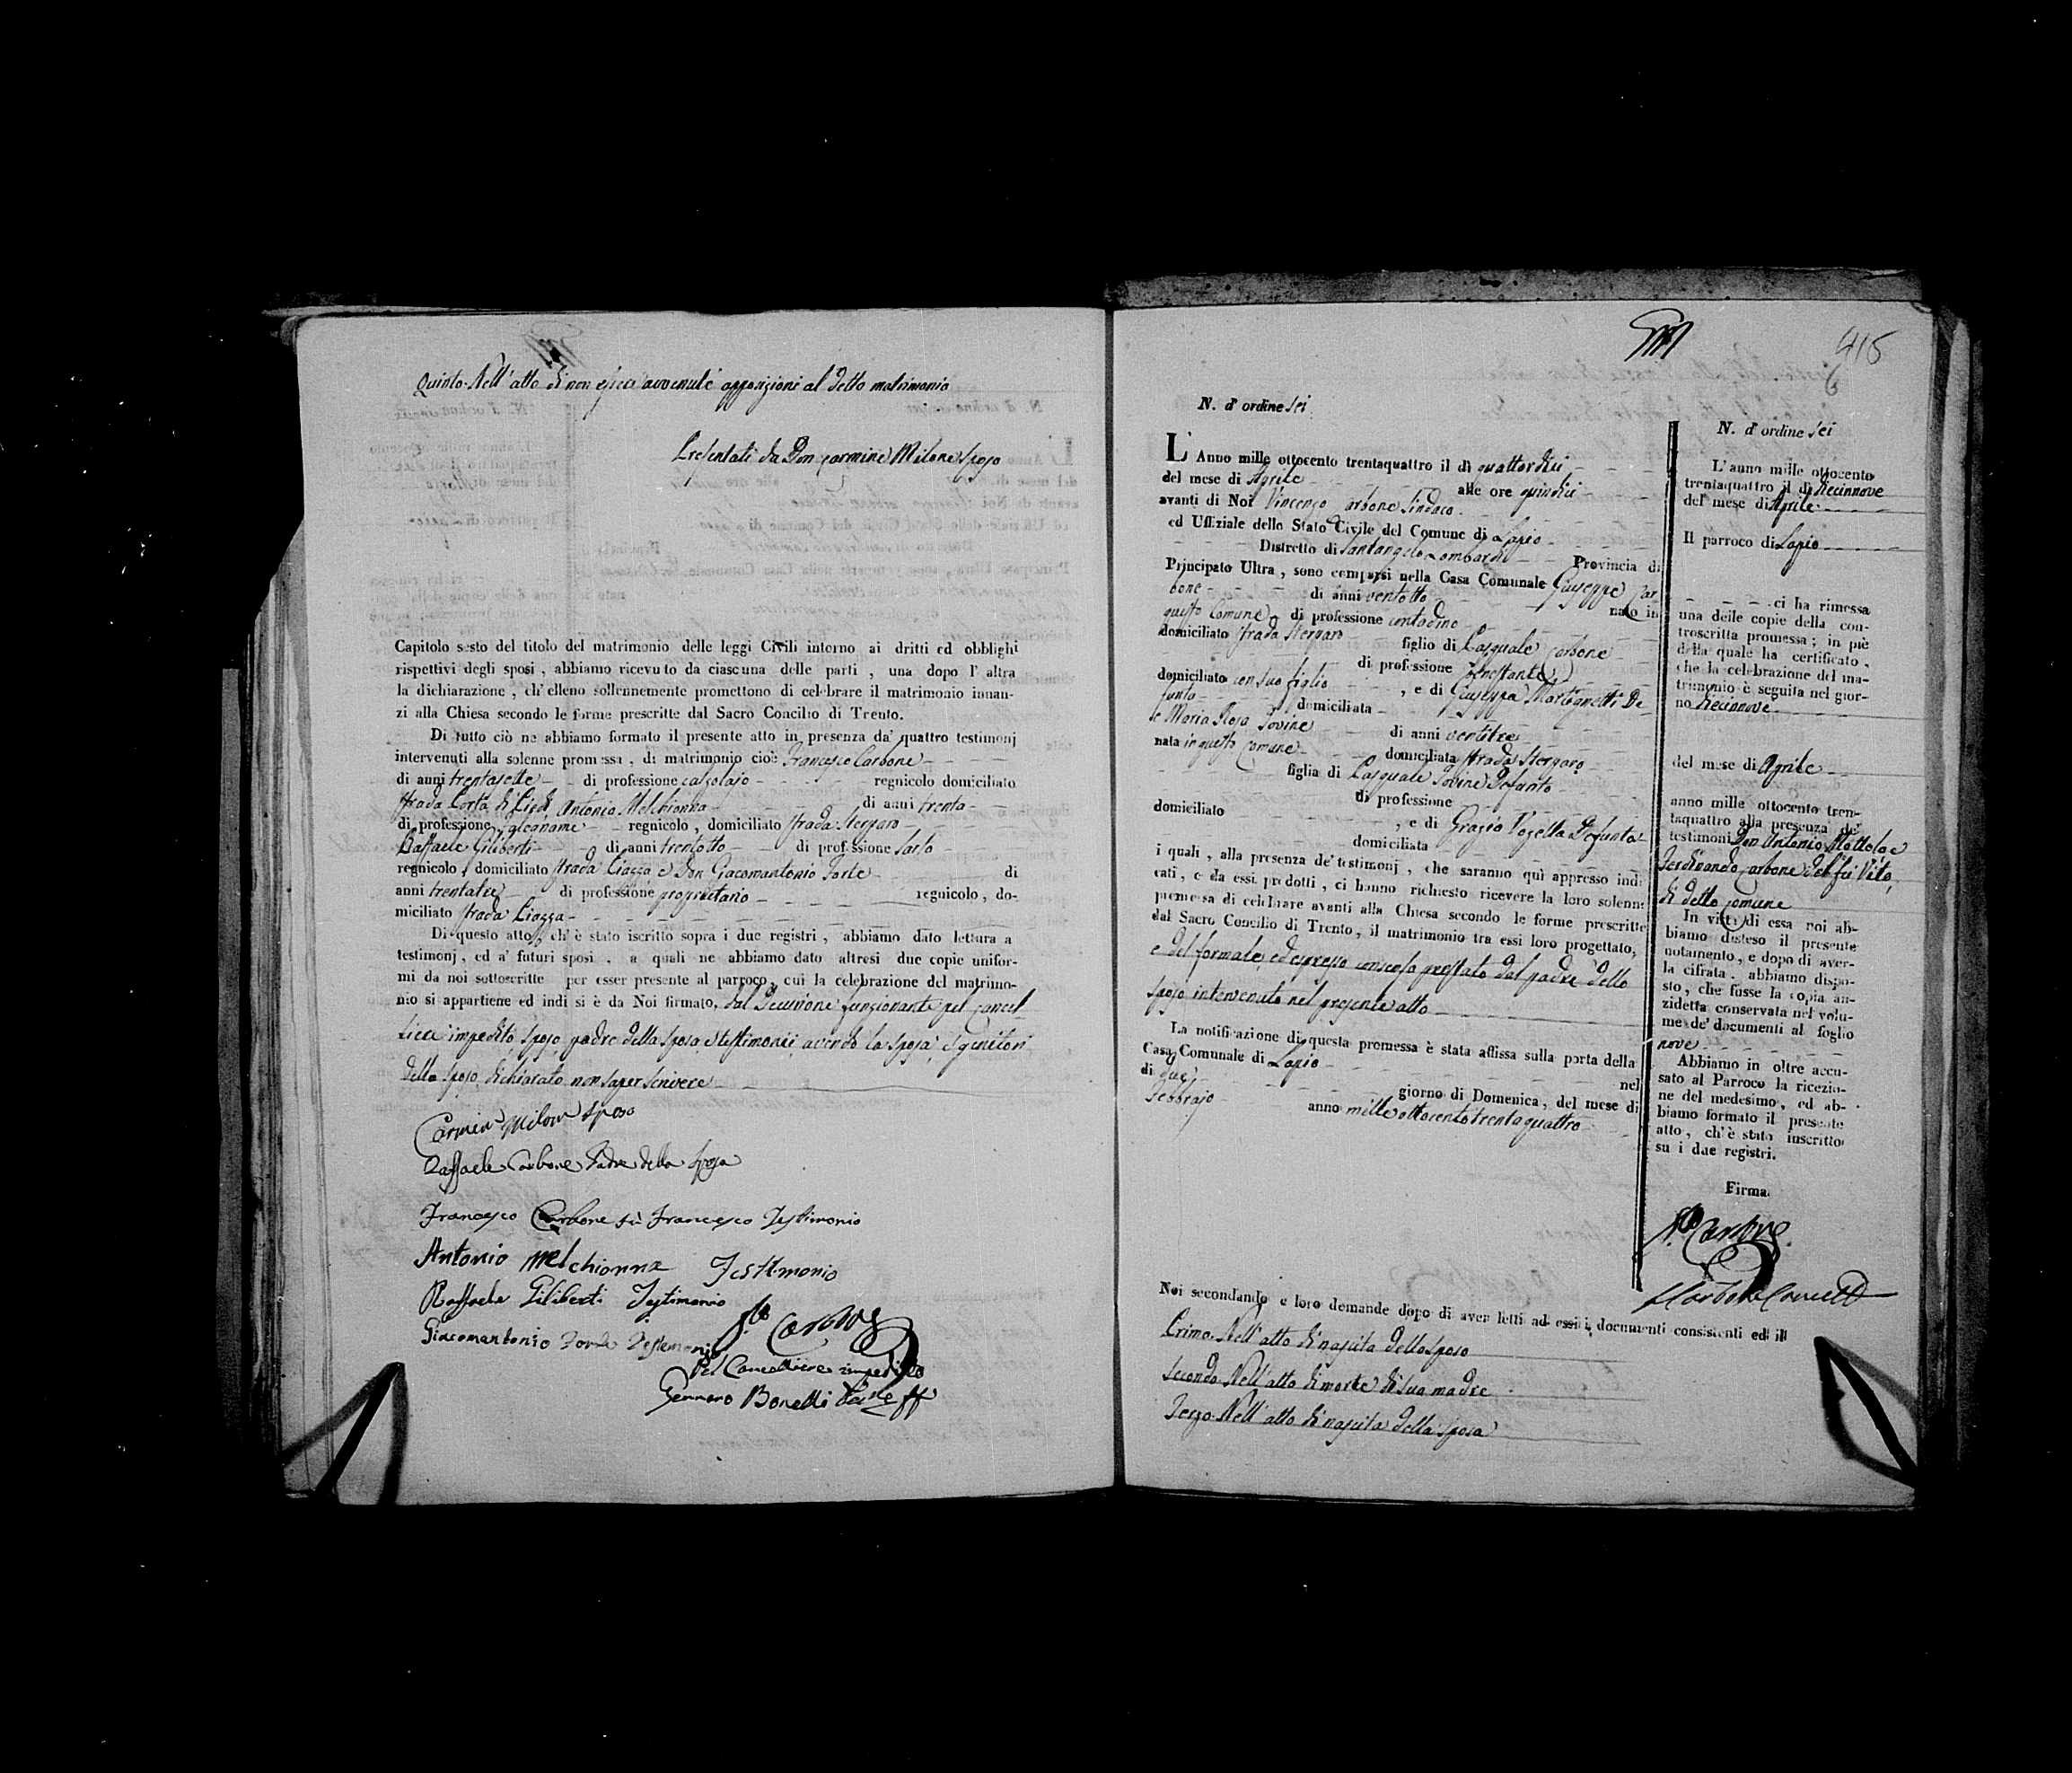 Quinto. Nell' atto di non esseci avvenute opposizioni al detto matrimonio
Presentati da Don Carmine Milone sposo
Capitolo sesto del titolo del matrimonio delle leggi Civili intorno ai dritti ed obblighi
rispettivi degli sposi, abbiamo ricevuto da ciascuna delle parti, una dopo l' altra
la dichiarazione, ch'elleno sollennemente promettono di celebrare il matrimonio innan-
zi alla Chiesa secondo le forme prescritte dal Sacro Concilio di Trento.
Di tutto ciò ne abbiamo formato il presente atto in presenza da' quattro testimonj
intervenuti alla solenne promessa, di matrimonio cioè Francesco Carbone
di anni trentasette di professione calzolajo regnicolo domiciliato
strada Porta di Piedi, Antonio Melchionna di anni trenta
di professione falegname regnicolo, domiciliato strada Sterparo
Raffaele Giliberti di anni trentotto di professione Sarto
regnicolo domiciliato strada Piazza e Don Giacomantonio Forte di
anni trentatre di professione proprietario regnicolo, do-
miciliato strada Piazza
Di questo atto, ch'è stato iscritto sopra i due registri, abbiamo dato lettura a
testimonj, ed a' futuri sposi, a quali ne abbiamo dato altresi due copie unifor-
mi da noi sottoscritte per esser presente al parroco, cui la celebrazione del matrimo-
nio si appartiene ed indi si è da Noi firmato, dal Decurione funzionante pel Cancel-
liere impedito, sposo, padre della sposa, e testimonii, avendo la sposa, e genitori
dello sposo dichiarato non saper scrivere
Carmin Milon sposo
Raffaele Carbone Padre della sposa
Francesco Carbone fù Francesco Testimonio
Antonio Melchionna Testimonio
Raffaele Giliberti Testimonio
Giacomantonio Forte Testemonio
Carbone
Pel Cancelliere impedito
Gennaro Bonelli
415
N. d' ordine sei
L' Anno mille ottocento trentaquattro il dì quattordici
del mese di Aprile alle ore quindici
avanti di Noi Vincenzo Carbone Sindaco
ed Uffiziale dello Stato Civile del Comune di Lapio
Distretto di Santangelo Lombardi Provincia di
Principato Ultra, sono comparsi nella Casa Comunale Giuseppe Car
bone di anni ventotto nato in
questo Comune di professione contadino
domiciliato strada Sterparo figlio di Pasquale Carbone
di professione
domiciliato con suo figlio, e di Giuseppa Martignetti De-
funta domiciliata
e Maria Rosa Iovine di anni ventitre
nata in questo Comune domiciliata strada Sterparo
figlia di Pasquale Iovine Defunto
di professione
domiciliato, e di Grazia Vozella Defunta
domiciliata
i quali, alla presenza de' testimonj, che saranno quì appresso indi
cati, e da essi prodotti, ci hanno richiesto ricevere la loro solenne
promessa di celebrare avanti alla Chiesa secondo le forme prescritte
dal Sacro Concilio di Trento, il matrimonio tra essi loro progettato,
e del formale, ed espresso consenso prestato dal padre dello
sposo intervenuto nel presente atto
La notificazione di questa promessa è stata affissa sulla porta della
Casa Comunale di Lapio nel
dì due giorno di Domenica, del mese di
Febbrajo anno mille ottocento trentaquattro
Noi secondando e loro demande dopo di aver letti ad essi i documenti consistenti ed il
Primo. Nell' atto di nascita dello sposo
Secondo. Nell' atto di morte di sua madre
Terzo. Nell' atto di nascita della sposa
N. d' ordine sei
L'anno mille ottocento
trentaquattro il dì Decinnove
del mese di Aprile
Il parroco di Lapio
ci ha rimessa
una delle copie della con-
troscritta promessa; in piè
della quale ha certificato,
che la celebrazione del ma-
trimonio è seguita nel gior-
no Decinnove
del mese di Aprile
anno mille ottocento tren-
taquattro alla presenza de'
testimoni Don Antonio Mottola e
Ferdinando Carbone del fù Vito,
di detto Comune
In vista di essa noi ab-
biamo disteso il presente
notamento, e dopo di aver-
la cifrata, abbiamo dispo-
sto, che fusse la copia an-
zidetta conservata nel volu-
me de' documenti al foglio
nove
Abbiamo in oltre accu-
sato al Parroco la ricezio-
ne del medesimo, ed ab-
biamo formato il presente
atto, ch'è stato inscritto
su i due registri.
Firma
Carbone